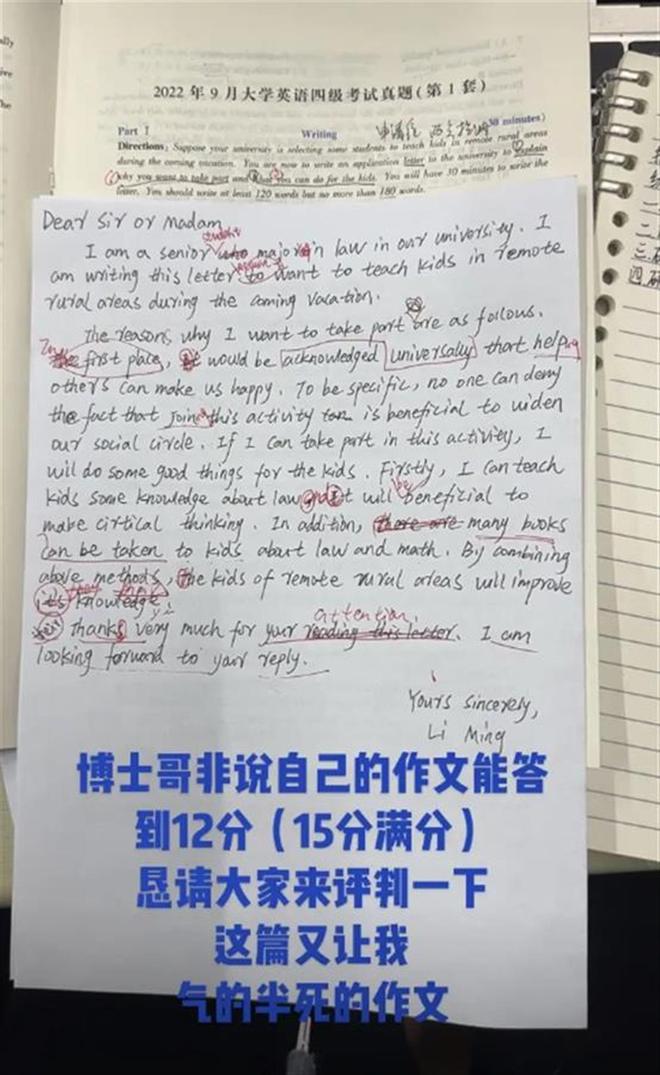 2022年9月大学英语四级考试真题(第1套)
Part I Writing 30 minutes)
Directions: Suppose your university is selecting some students to teach kids in remote rural areas
during the coming vacation. You are now to write an application letter to the university to explain
why you want to take part and what you can do for the kids. You will have 30 minutes to write the
letter. You should write at least 120 words but no more than 180 words.
Dear Sir or Madam,
student
I am a senior who major in law in our university. I
am writing this letter to want to teach kids in remote
rural areas during the coming vacation.
The reasons why I want to take part are as follows.
In
the first place, it would be acknowledged universally that helping
others can make us happy. To be specific, no one can deny
the fact that joining this activity is beneficial to widen
our social circle. If I can take part in this activity, I
will do some good things for the kids. Firstly, I can teach
be
kids some knowledge about law and it will beneficial to
make cirtical thinking. In addition, there are many books
can be taken to kids about law and math. By combining
above methods, the kids of remote rural areas will improve
it's knowledge.
attention
Thanks very much for your reading this letter. I am
looking forward to your reply.
Yours sincerely,
Li Ming
博士哥非说自己的作文能答
到12分（15分满分）
恳请大家来评判一下
这篇又让我
气的半死的作文